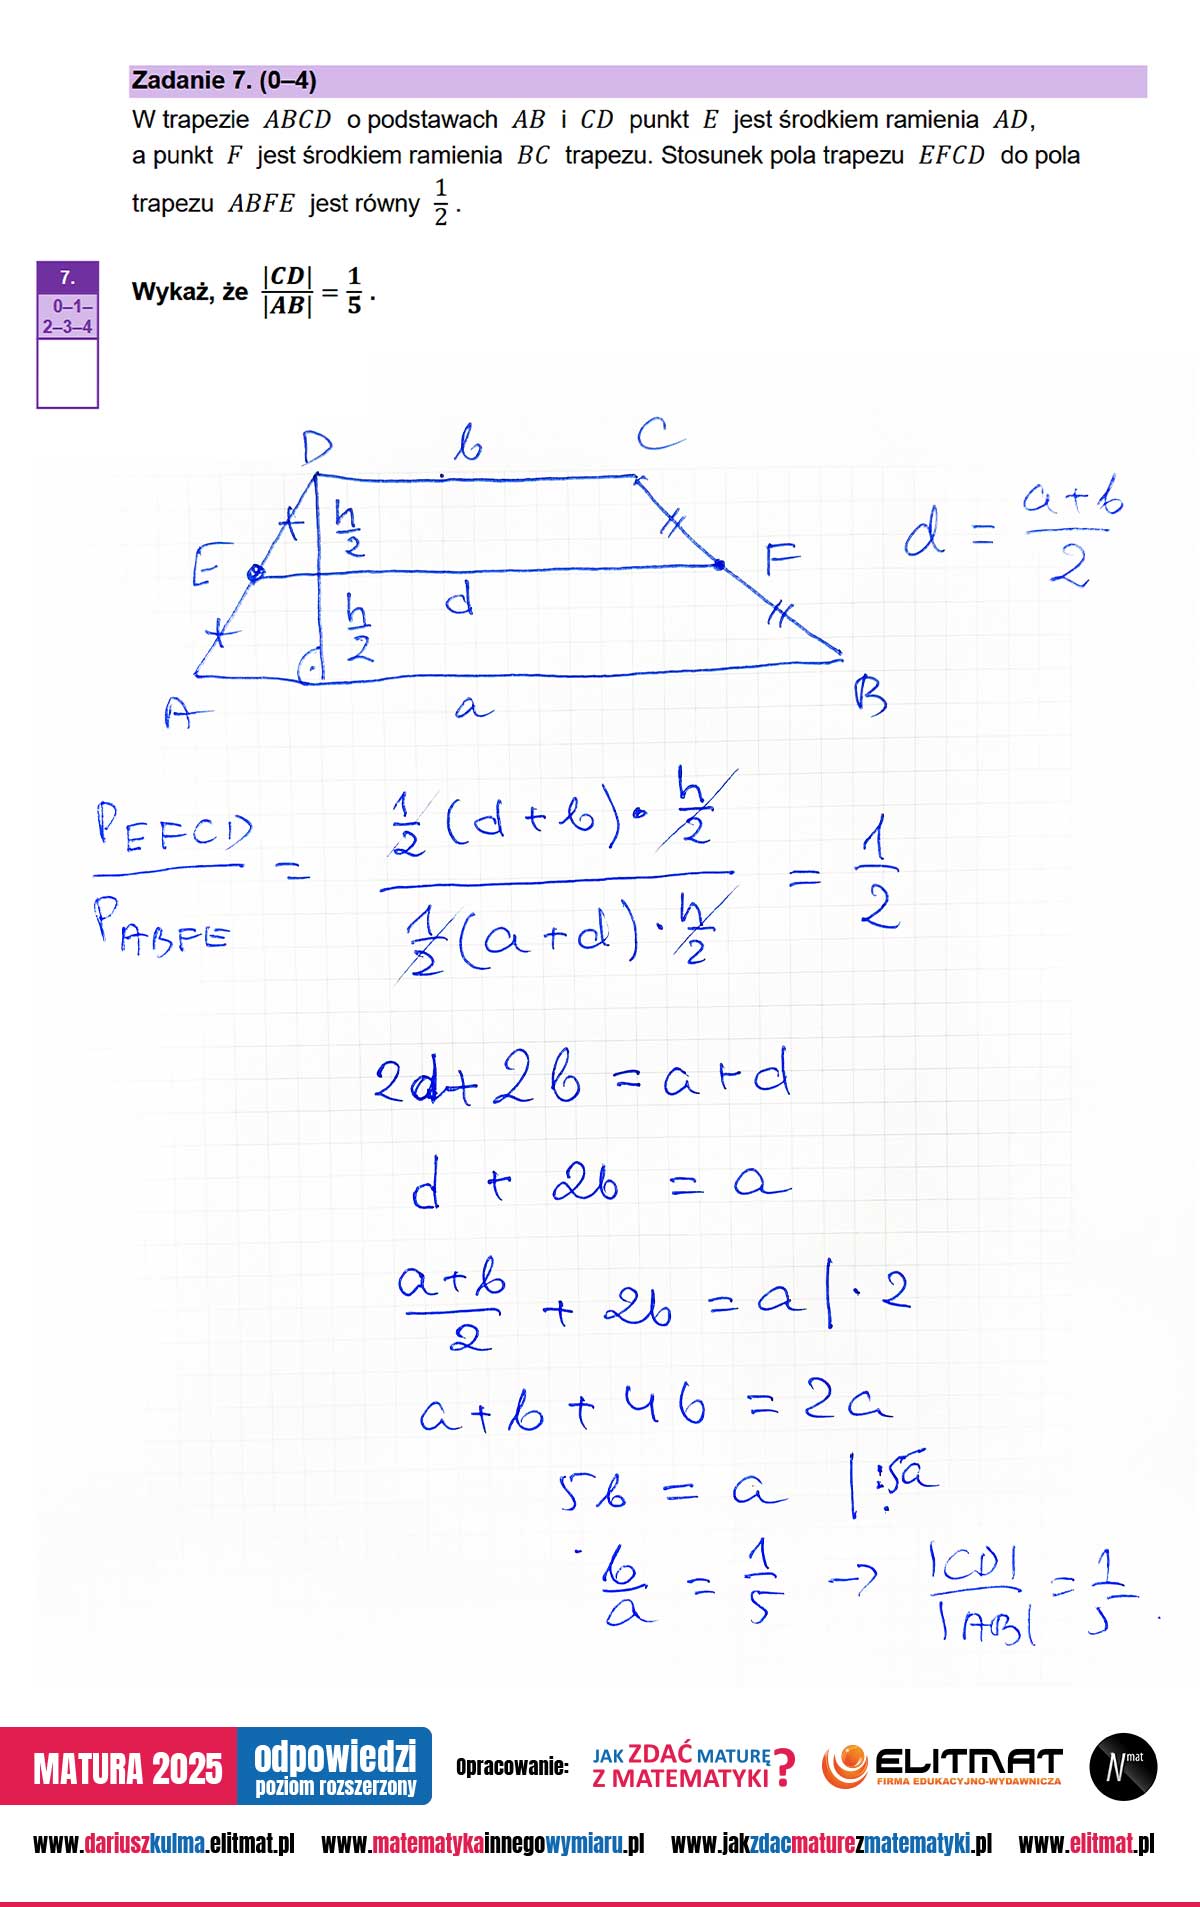 Zadanie 7. (0–4)
W trapezie ABCD o podstawach AB i CD punkt E jest środkiem ramienia AD,
a punkt F jest środkiem ramienia BC trapezu. Stosunek pola trapezu EFCD do pola
trapezu ABFE jest równy 1/2 .
7.
0–1–
2–3–4
Wykaż, że |CD|/|AB| = 1/5 .
D b C
h/2
E F
d
h/2
A a B
d = (a+b)/2
P EFCD / P ABFE = (1/2 (d+b) · h/2) / (1/2 (a+d) · h/2) = 1/2
2d + 2b = a + d
d + 2b = a
(a+b)/2 + 2b = a | · 2
a + b + 4b = 2a
5b = a | :5a
b/a = 1/5 → |CD|/|AB| = 1/5 .
MATURA 2025
odpowiedzi
poziom rozszerzony
Opracowanie:
JAK ZDAĆ MATURĘ
Z MATEMATYKI ?
ELITMAT
FIRMA EDUKACYJNO-WYDAWNICZA
N mat
www.dariuszkulma.elitmat.pl www.matematykainnegowymiaru.pl www.jakzdacmaturezmatematyki.pl www.elitmat.pl